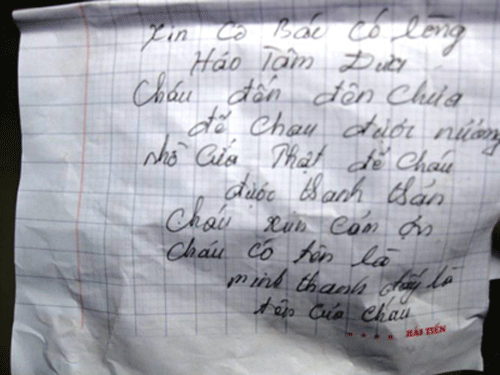 Xin Cô Bác có lòng
Hảo Tâm Đưa
Cháu đến đền Chùa
để Cháu được nương
nhờ Cửa Phật để Cháu
được thanh thản
Cháu xin cảm ơn
Cháu có tên là
minh thanh đấy là
tên của cháu
HẢI TIẾN